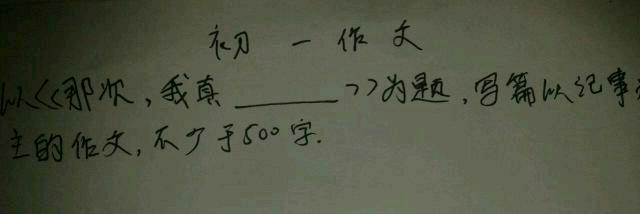 初一作文
以《那次，我真______》为题，写篇以记事为
主的作文，不少于500字.